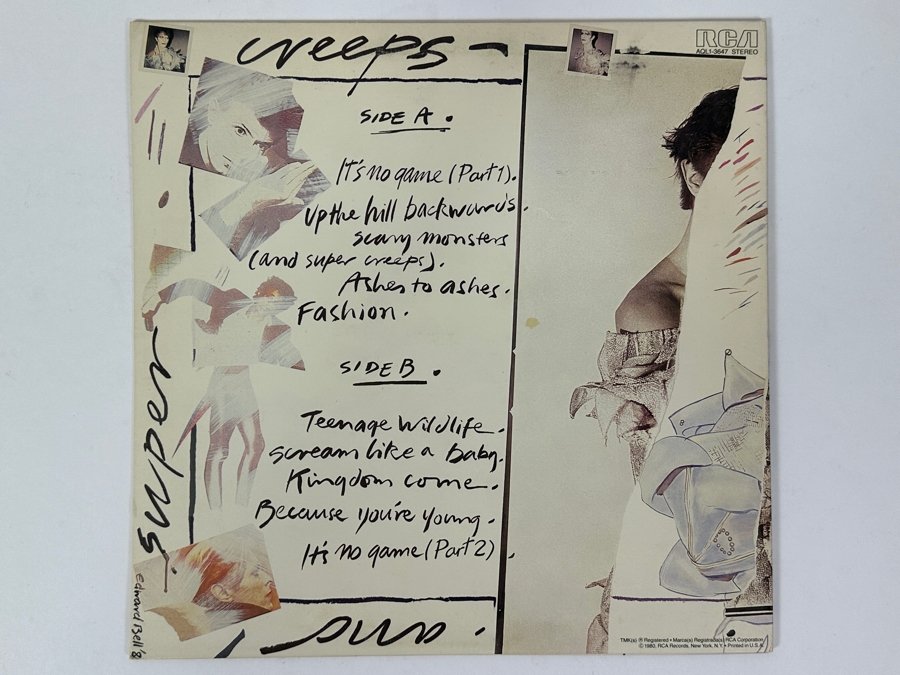 creeps -
RCA
AQL1-3647 STEREO
SIDE A.
It's no game (Part 1).
up the hill backwards.
scary monsters
(and super creeps).
Ashes to ashes.
Fashion.
SIDE B.
Teenage Wildlife.
scream like a baby.
Kingdom come.
Because you're young.
It's no game (Part 2).
super
and.
Edward Bell '8
TMK(s) ® Registered • Marca(s) Registrada(s) RCA Corporation
© 1980, RCA Records, New York, N.Y. • Printed in U.S.A.